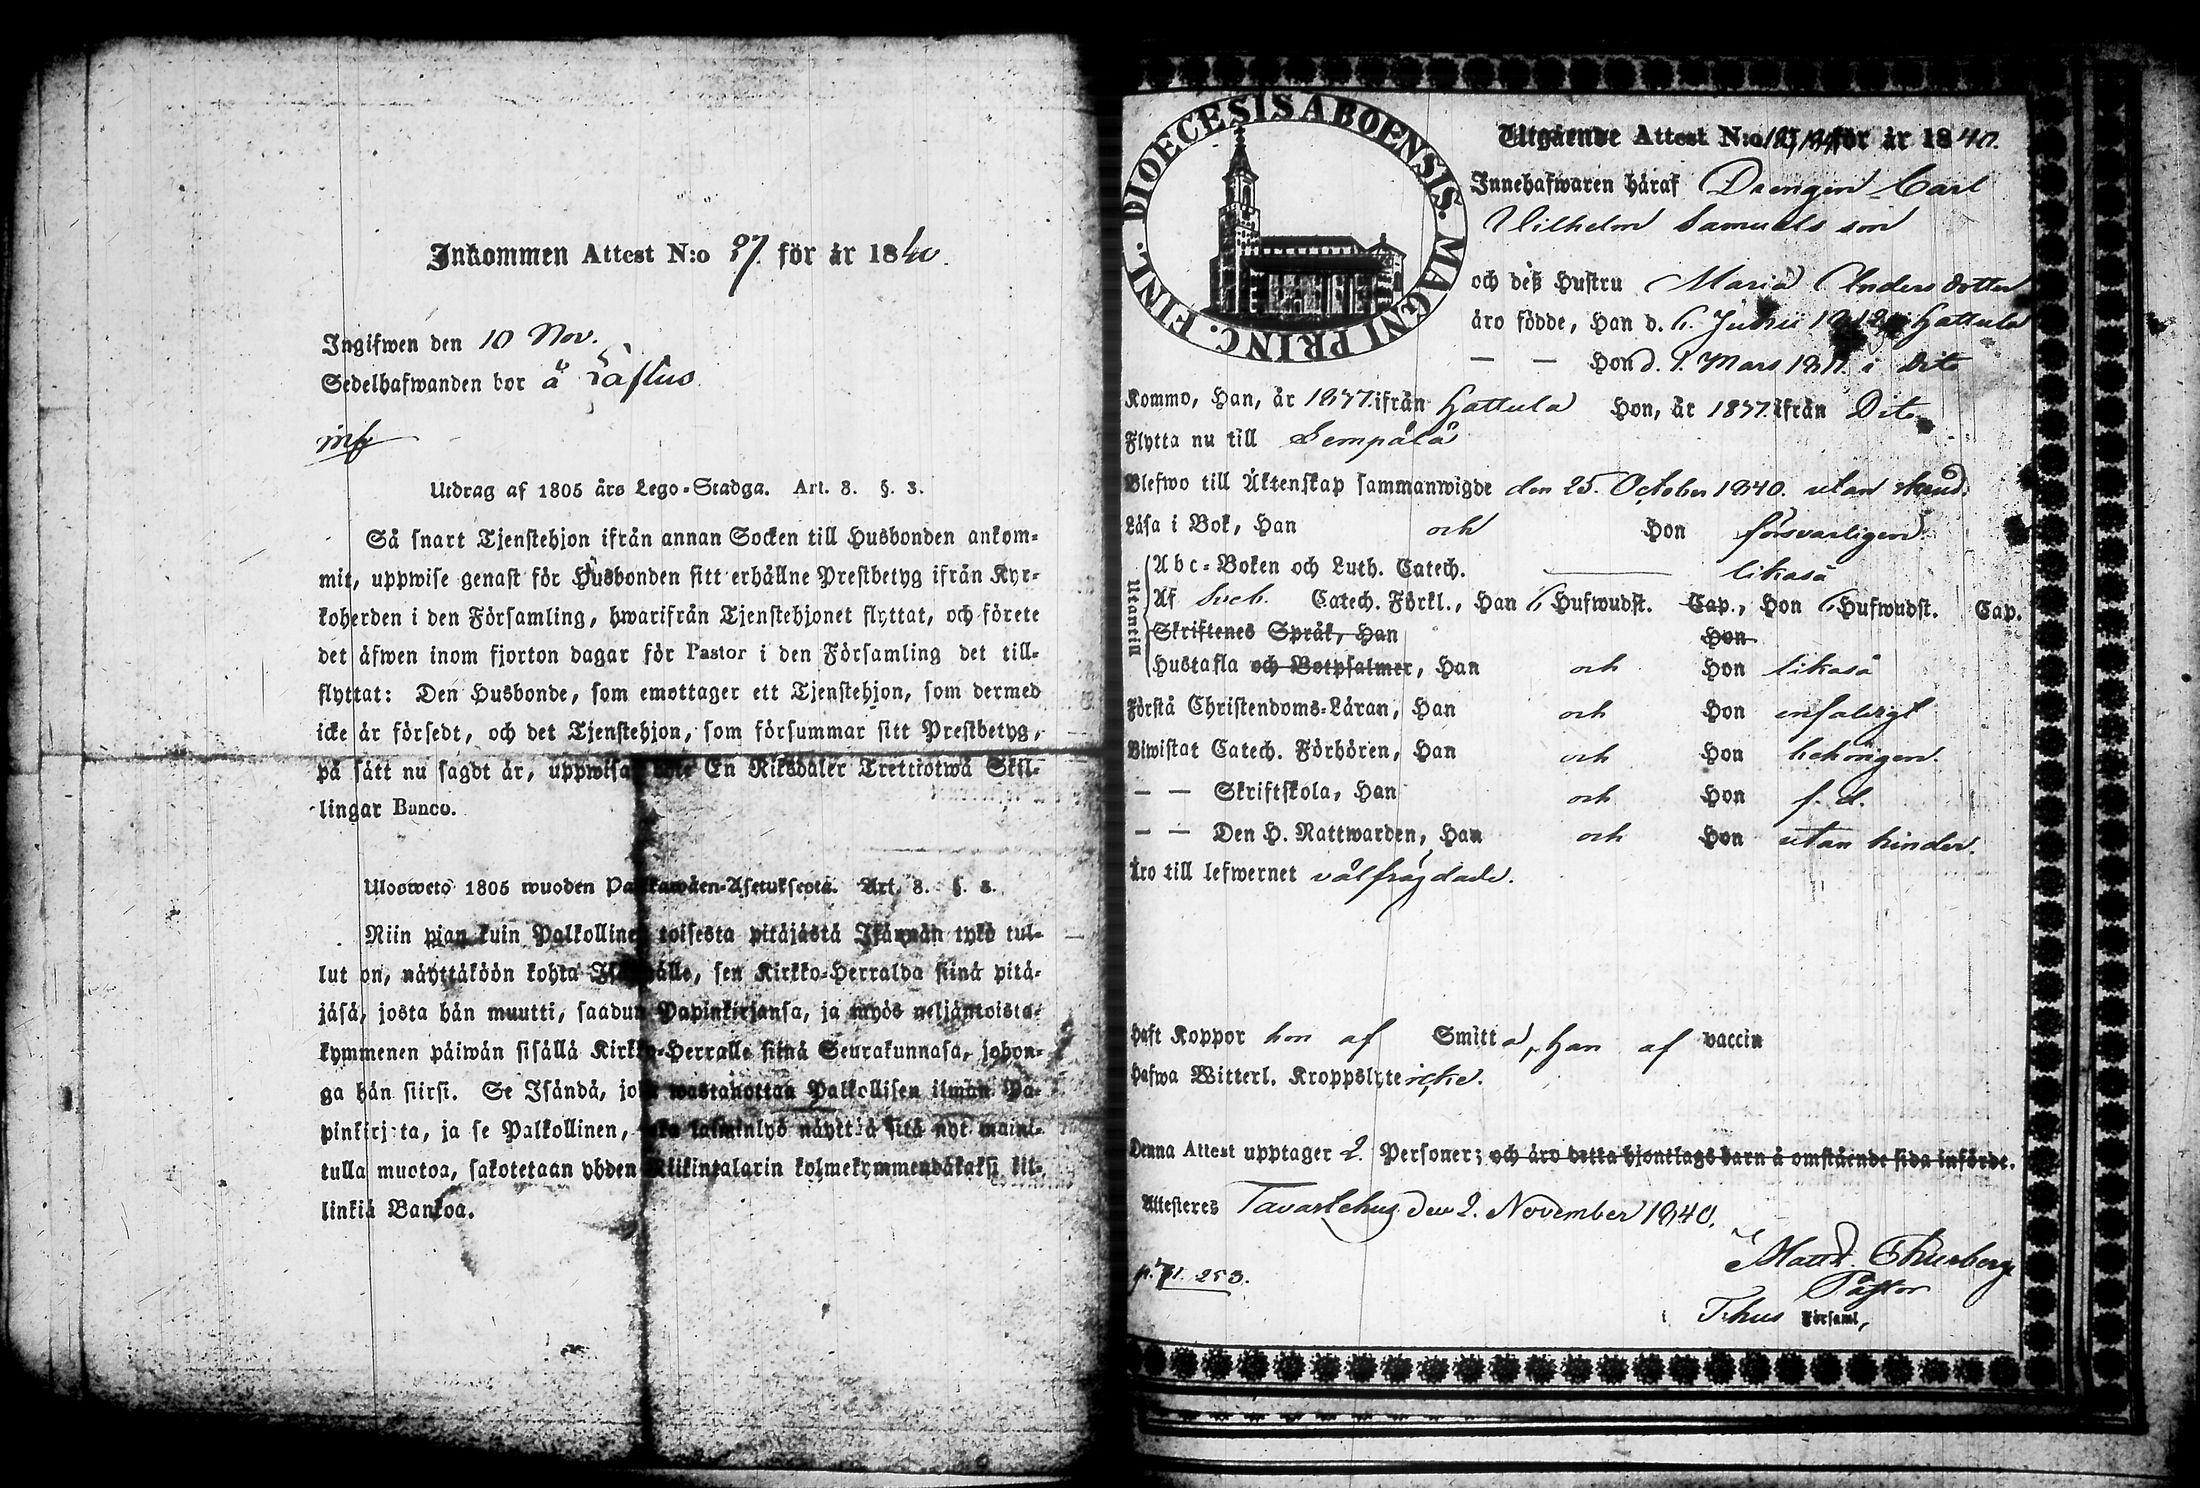 Inkommen Attest N:o 37 för år 1840.
Ingifwen den 10 Nov.
Sedelhafwanden bor å
Utdrag af 1805 års Lego-Stadga. Art. 8. §. 3.
Så snart Tjenstehjon ifrån annan Socken till Husbonden ankom-
mit, uppwise genast för Husbonden sitt erhållne Prestbetyg ifrån Kyr-
koherden i den Församling, hwarifrån Tjenstehjonet flyttat, och förete
det äfwen inom fjorton dagar för Pastor i den Församling det till-
flyttat: Den Husbonde, som emottager ett Tjenstehjon, som dermed
icke är försedt, och det Tjenstehjon, som försummar sitt Prestbetyg,
på sätt nu sagdt är, uppwisa, En Riksdaler Trettiotwå Skil-
lingar Banco.
Ulosweto 1805 wuoden Palkawäen-Asetuksesta. Art. 8. §. 3.
Niin pian kuin Palkollinen toisesta pitäjästä Isännän tykö tul-
lut on, näyttäköön kohta Isännälle, sen Kirkko-Herralda siinä pitä-
jäsä, josta hän muutti, saadun Papinkirjansa, ja myös neljäntoista-
kymmenen päiwän sisällä Kirkko-Herralle siinä Seurakunnasa, johon-
ga hän siirsi. Se Isändä, joka wastanottaa Palkollisen ilman Pa-
pinkirjata, ja se Palkollinen, joka laiminlyö näyttää sitä nyt maini-
tulla muotoa, sakotetaan yhden Riikintalarin kolmekymmendäkaksi kil-
linkiä Bankoa.
DIOECESIS ABOENSIS. MAGNI PRINC. FINL.
Utgående Attest N:o för år 1840.
Innehafwaren häraf Drengen Carl
Vilhelm Samuelsson
och deß Hustru Maria Andersdotter
äro födde, Han d. 6. Junii 1812 i Hattula
— — Hon d. 1. Mars 1811. i Dito
Kommo, Han, år 1837. ifrån Hattula Hon, år 1837. ifrån Dito
Flytta nu till Lempälä
Blefwo till Äktenskap sammanwigde den 25. October 1840. utan
Läsa i Bok, Han och Hon försvarligen
Utantill
Abc-Boken och Luth. Catech. likaså
Af Sveb. Catech. Förkl., Han 6 Hufwudst. Cap., Hon 6 Hufwudst. Cap.
Skriftenes Språk, Han Hon
Hustafla och Botpsalmer, Han och Hon likaså
Förstå Christendoms-Läran, Han och Hon enfaldigt
Biwistat Catech. Förhören, Han och Hon behörigen.
— — Skriftskola, Han och Hon f. d.
— — Den H. Nattwarden, Han och Hon utan hinder.
Äro till lefwernet välfrägdade.
Haft Koppor hon af Smitta, han af vaccin
Hafwa Witterl. Kroppslyte icke.
Denna Attest upptager 2. Personer; och äro detta hjontlags barn å omstående sida införde.
Attesteres Tavastehus den 2. November 1840.
Pastor
p. 71. 253.
T:hus Församl,